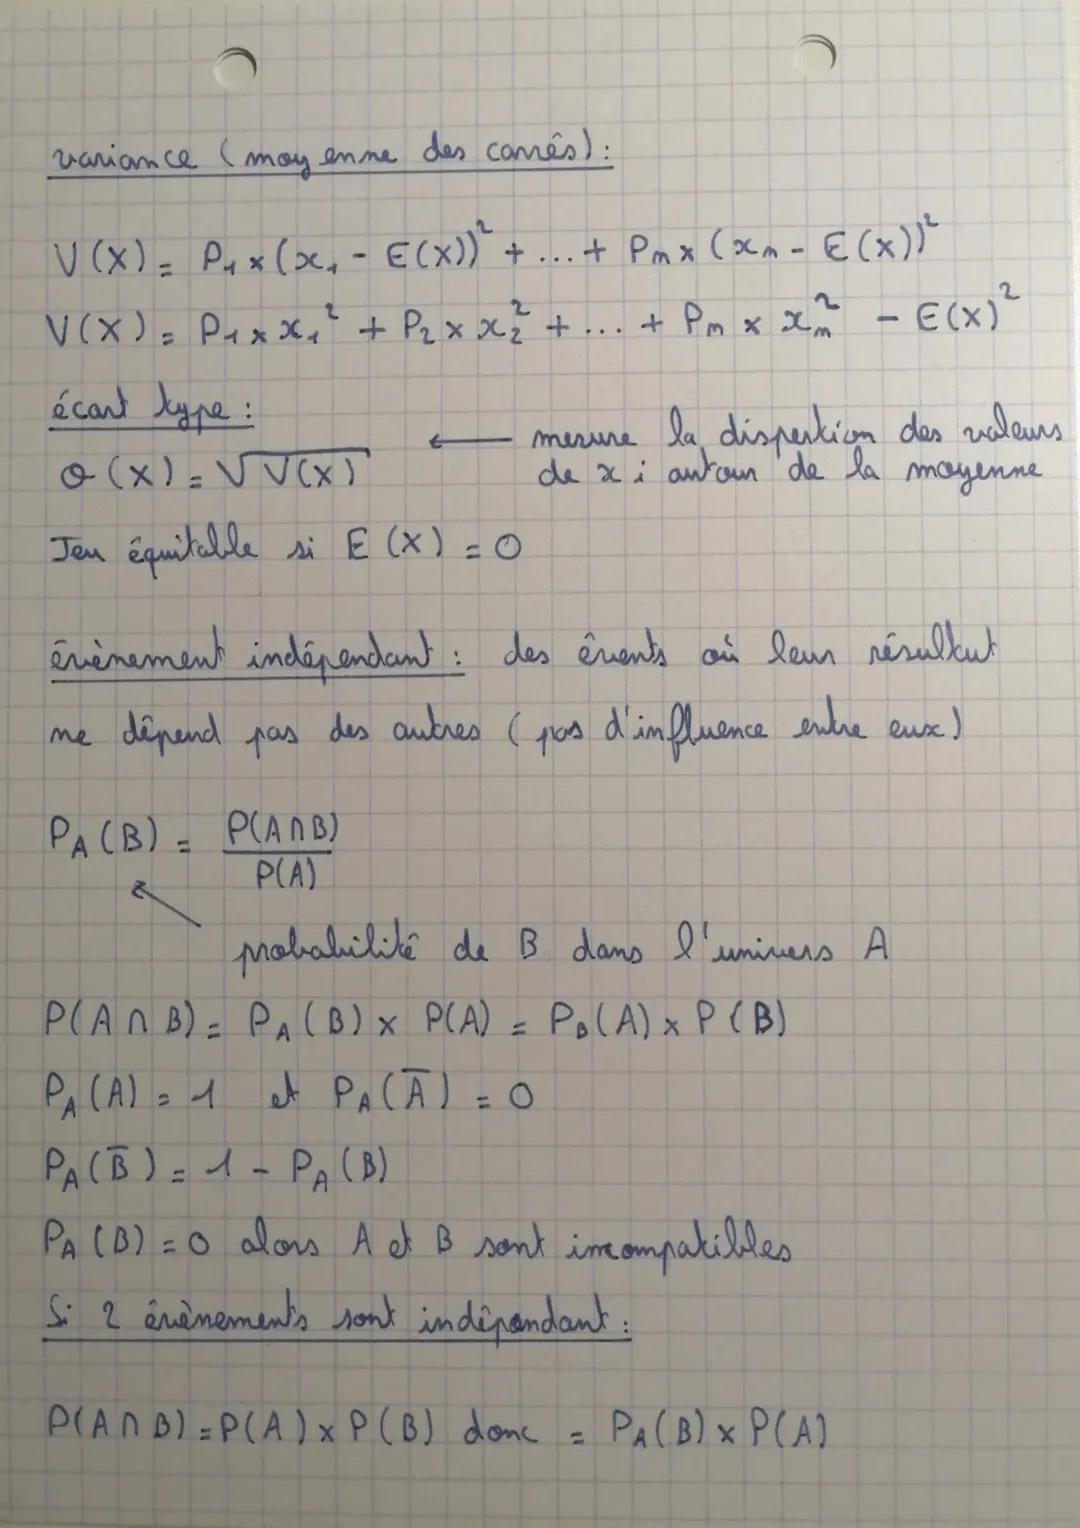 variance (moyenne des carrés) :
V(X) = P₁ × (x₁ - E(X))² + ... + Pₙ × (xₙ - E(X))²
V(X) = P₁ × x₁² + P₂ × x₂² + ... + Pₙ × xₙ² - E(X)²
écart type :
← mesure la dispertion des valeurs
σ(X) = √V(X) de xi autour de la moyenne
Jeu équitable si E(X) = 0
évènement indépendant : des évents où leur résultat
ne dépend pas des autres (pas d'influence entre eux)
P_A(B) = P(A∩B) / P(A)
probabilité de B dans l'univers A
P(A∩B) = P_A(B) × P(A) = P_B(A) × P(B)
P_A(A) = 1 et P_A(A̅) = 0
P_A(B̅) = 1 - P_A(B)
P_A(B) = 0 alors A et B sont incompatibles
Si 2 évènements sont indépendant :
P(A∩B) = P(A) × P(B) donc = P_A(B) × P(A)